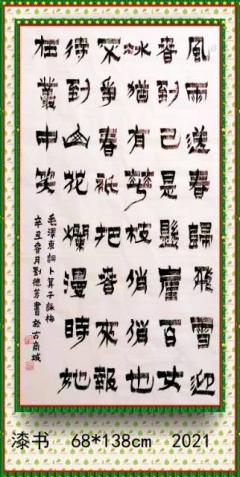 風雨送春歸飛雪迎
春到已是懸崖百丈
冰猶有華枝俏俏也
不爭春祇把春來報
待到山花爛漫時她
在叢中笑
毛澤東詞卜算子詠梅
辛丑春月劉德芳書於古商城
漆书 68*138cm 2021